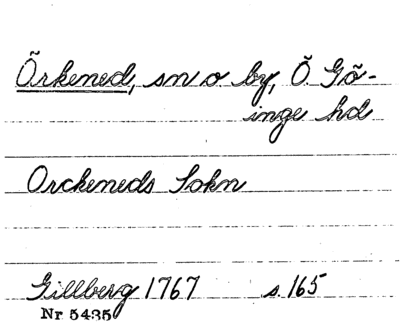 Örkened, sn o by, Ö. Gö-
inge hd
Orckeneds Sokn
Gillberg 1767 s. 165
Nr 5435